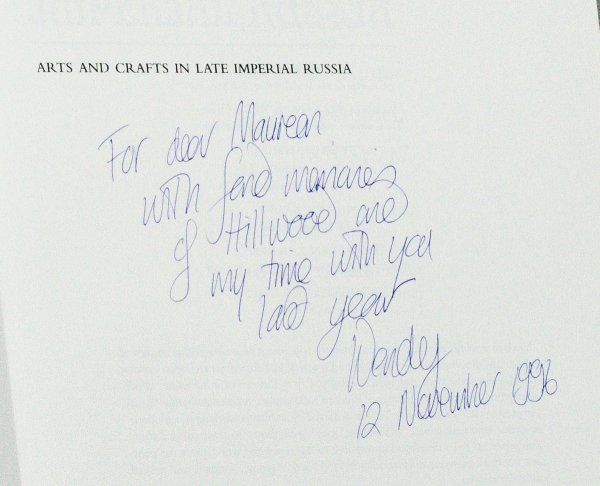 ARTS AND CRAFTS IN LATE IMPERIAL RUSSIA
For dear Maureen
with fond memories
of Hillwood and
my time with you
last year
Wendy
12 November 1996